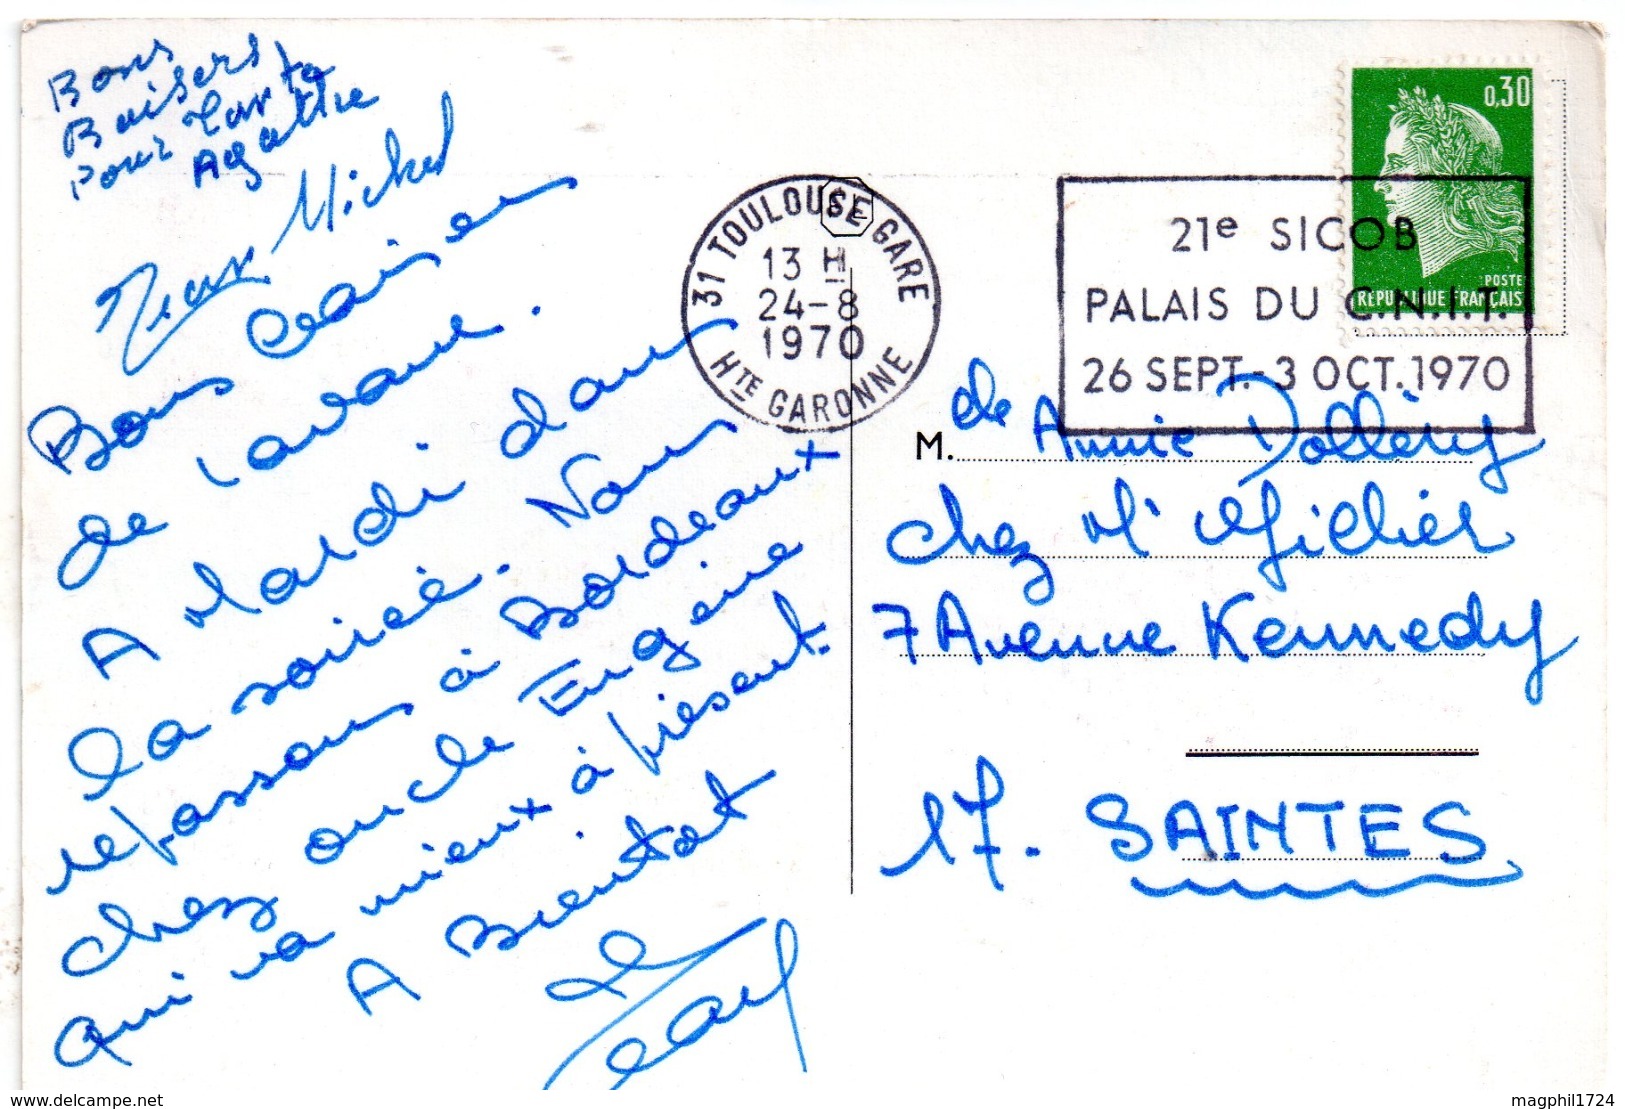 Bons
Baisers
pour Tante
Agathe
Jean Michel
Bons baisers
de
A Mardi dans
la soirée. Nous
repassons à Bordeaux
chez oncle Eugène
qui va mieux à présent.
A Bientot
Jean
31 TOULOUSE GARE
13 H
24-8
1970
HTE GARONNE
21e SICOB
PALAIS DU C.N.I.T.
26 SEPT.-3 OCT.1970
0,30
POSTE
REPUBLIQUE FRANÇAIS
M.
Annie
chez Mr
7 Avenue Kennedy
17. SAINTES
delcampe.net
magphil1724